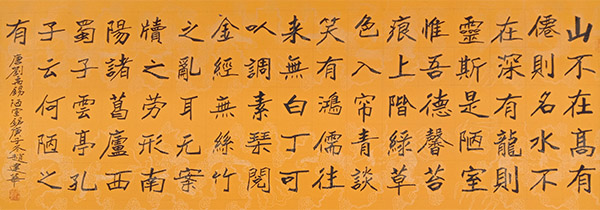 山不在高有
僊則名水不
在深有龍則
靈斯是陋室
惟吾德馨苔
痕上階綠草
色入帘青談
笑有鴻儒往
来無白丁可
以調素琴閱
金經無絲竹
之亂耳无案
牘之劳形南
陽諸葛廬西
蜀子雲亭孔
子云何陋之
有
唐劉禹錫陋室銘庚子冬趙建華